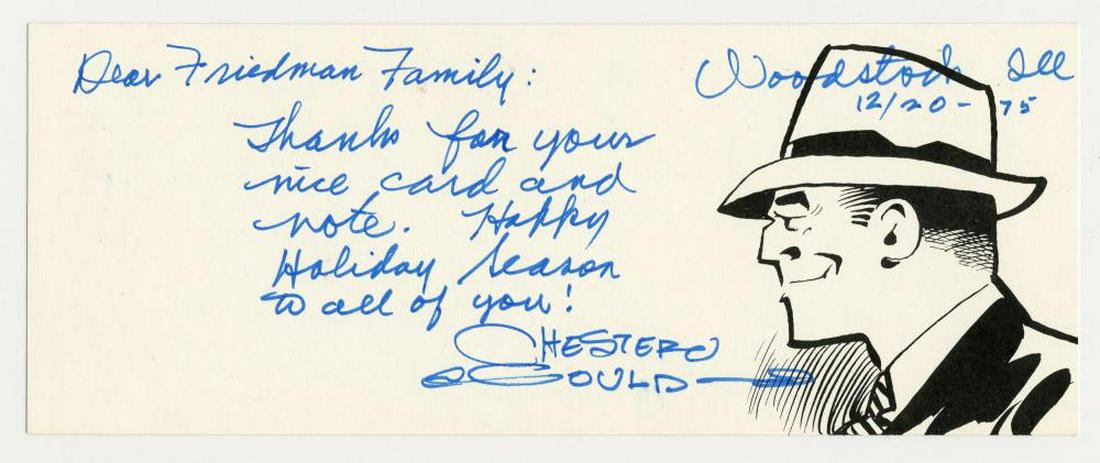 Dear Friedman Family:
Woodstock Ill
12/20-75
Thanks for your
nice card and
note. Happy
Holiday Season
to all of you!
CHESTER
GOULD